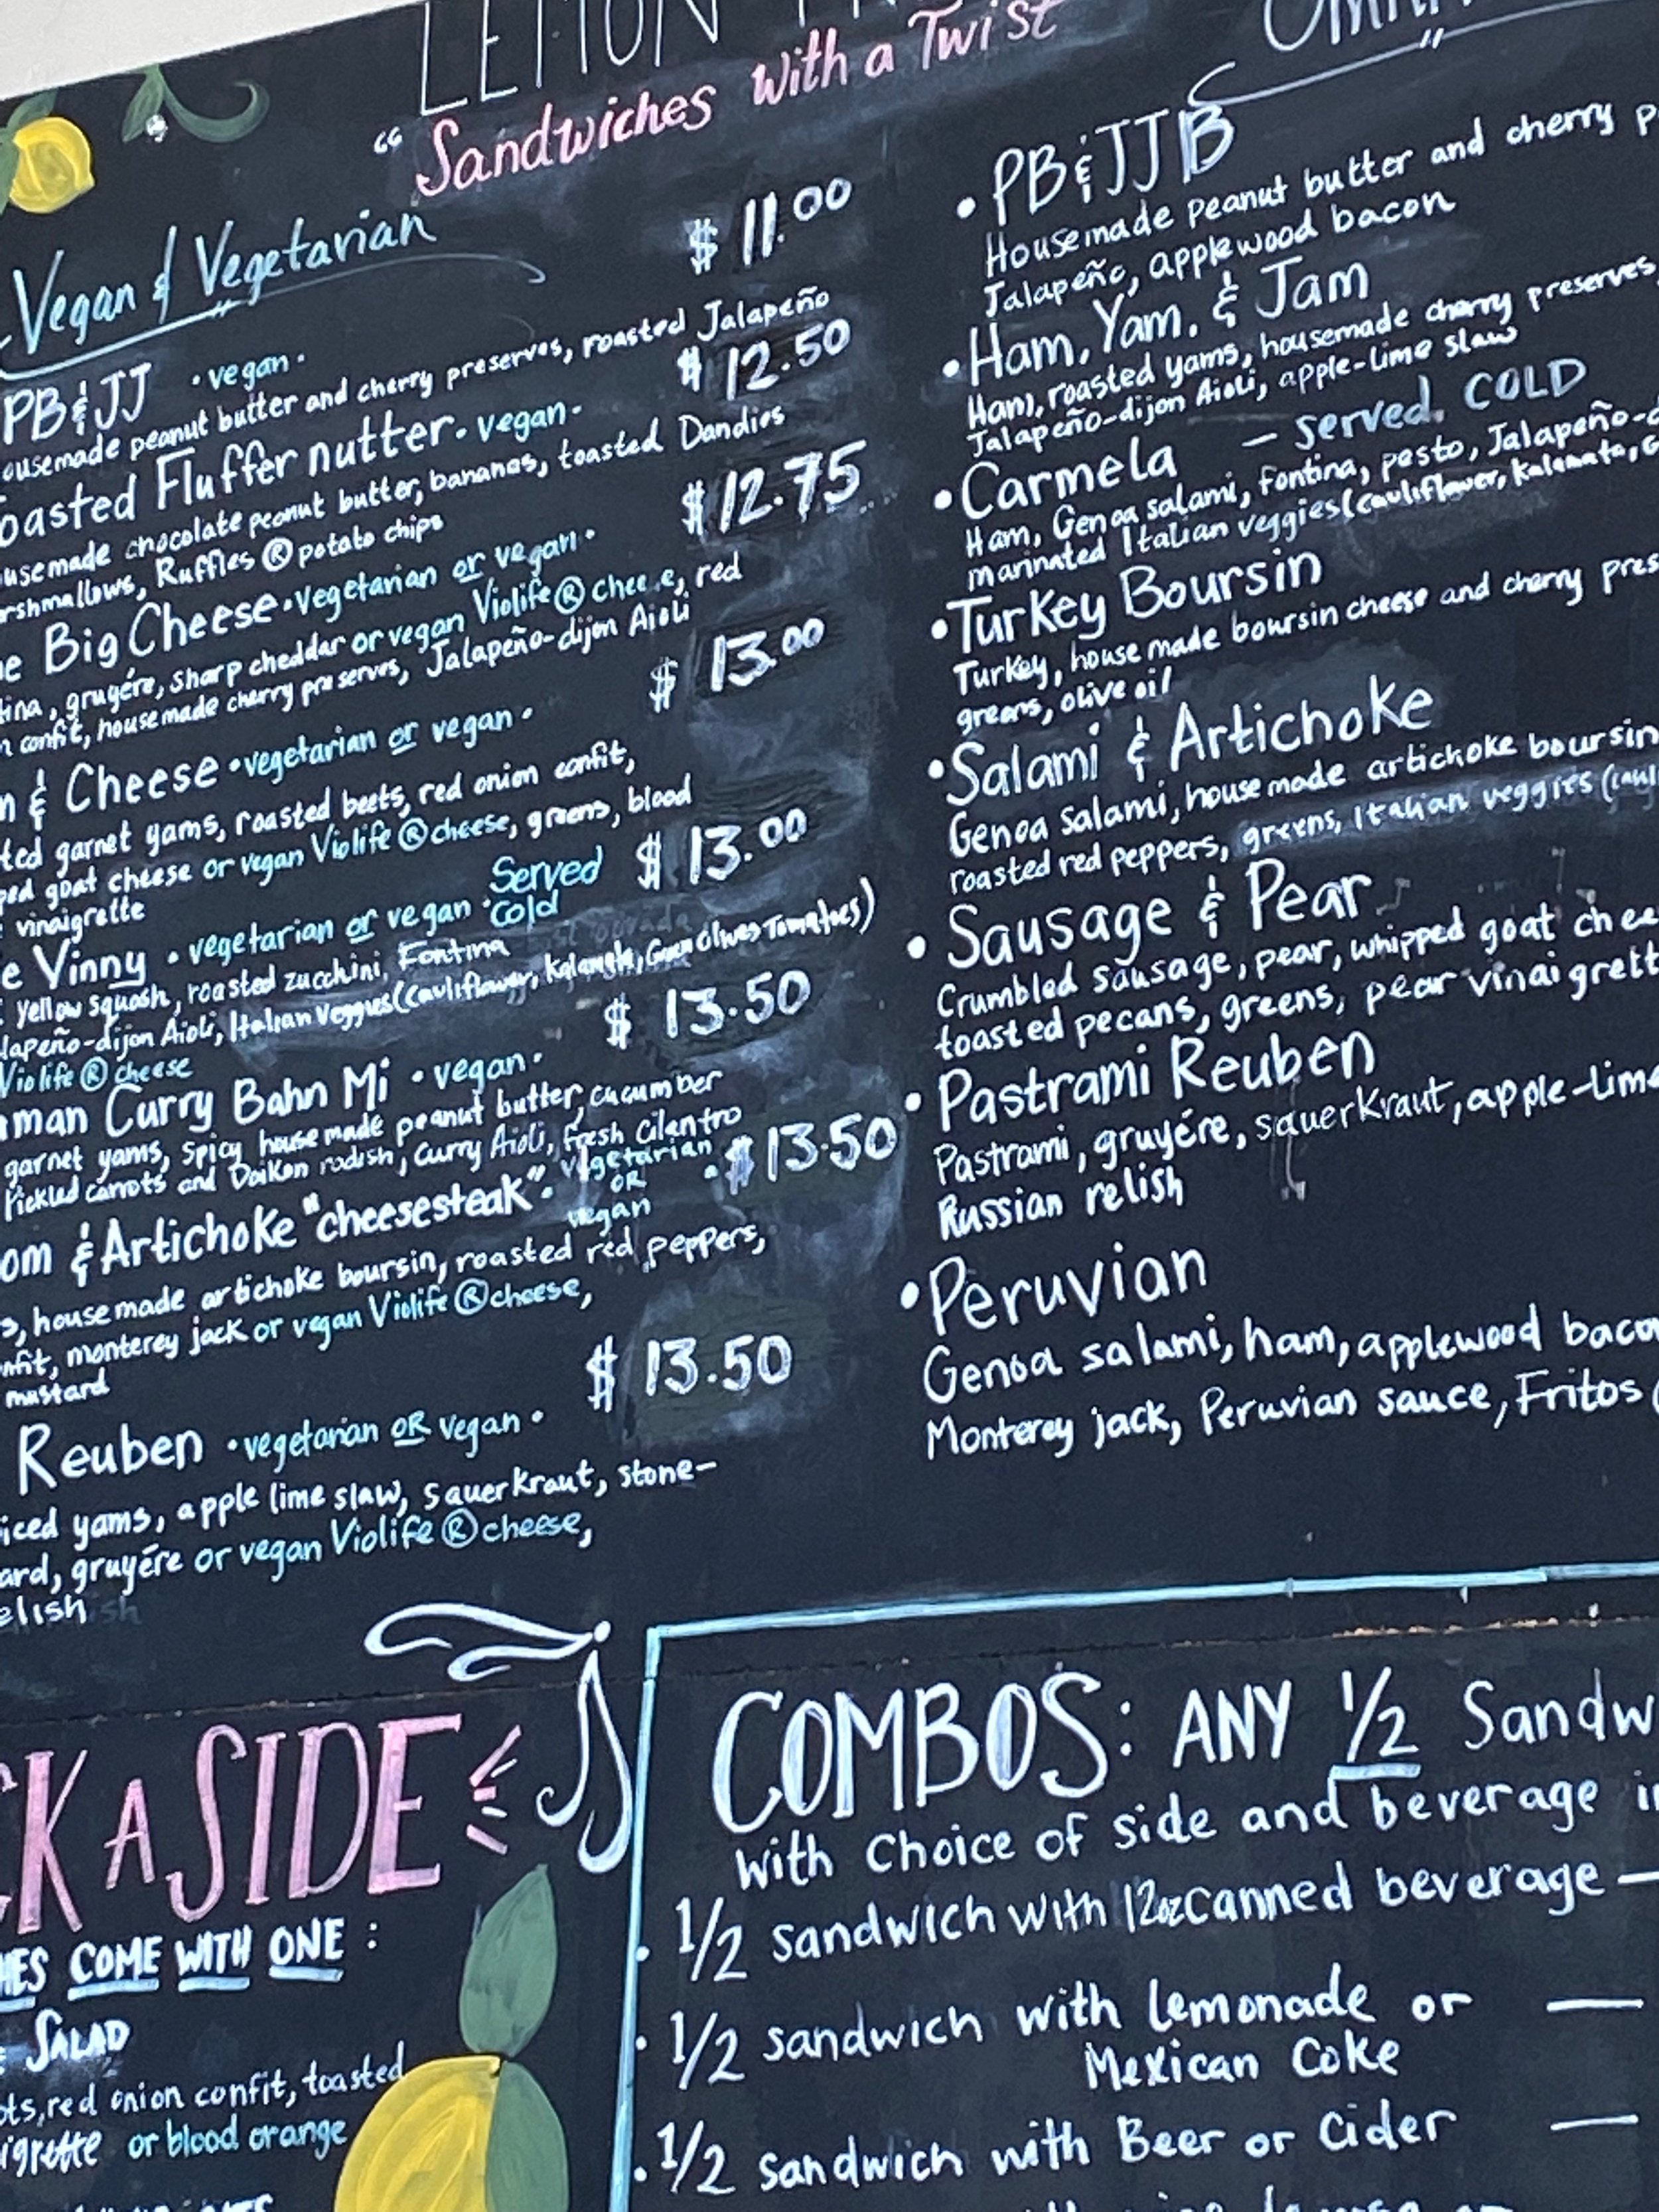 LEMON
"Sandwiches with a Twist"
Vegan & Vegetarian
PB&JJ • vegan • $11.00
housemade peanut butter and cherry preserves, roasted Jalapeño
Toasted Fluffernutter • vegan • $12.50
housemade chocolate peanut butter, bananas, toasted Dandies
marshmallows, Ruffles ® potato chips
The Big Cheese • vegetarian or vegan • $12.75
fontina, gruyére, sharp cheddar or vegan Violife® cheese, red
onion confit, housemade cherry preserves, Jalapeño-dijon Aioli
& Cheese • vegetarian or vegan • $13.00
garnet yams, roasted beets, red onion confit,
goat cheese or vegan Violife® cheese, greens, blood
vinaigrette
Vinny • vegetarian or vegan • Served Cold $13.00
yellow squash, roasted zucchini, Fontina
Jalapeño-dijon Aioli, Italian Veggies (cauliflower, Kalamata, Green Olives Tomatoes)
Violife® cheese
Curry Bahn Mi • vegan • $13.50
garnet yams, spicy housemade peanut butter, cucumber
Pickled carrots and Daikon radish, Curry Aioli, fresh Cilantro
& Artichoke "cheesesteak" • vegetarian OR vegan • $13.50
housemade artichoke boursin, roasted red peppers,
monterey jack or vegan Violife® cheese,
mustard
Reuben • vegetarian OR vegan • $13.50
yams, apple lime slaw, sauerkraut, stone-
gruyére or vegan Violife® cheese,
relish
• PB&JJB
Housemade peanut butter and cherry
Jalapeño, applewood bacon
• Ham, Yam, & Jam
Ham, roasted yams, housemade cherry preserves,
Jalapeño-dijon Aioli, apple-lime slaw
• Carmela – served COLD
Ham, Genoa salami, fontina, pesto, Jalapeño-
marinated Italian veggies (cauliflower, Kalamata,
• Turkey Boursin
Turkey, house made boursin cheese and cherry
greens, olive oil
• Salami & Artichoke
Genoa salami, house made artichoke boursin
roasted red peppers, greens, Italian veggies
• Sausage & Pear
Crumbled sausage, pear, whipped goat
toasted pecans, greens, pear
• Pastrami Reuben
Pastrami, gruyére, sauerkraut, apple-lime
Russian relish
• Peruvian
Genoa salami, ham, applewood
Monterey jack, Peruvian sauce, Fritos
A SIDE
COME WITH ONE:
SALAD
red onion confit, toasted
or blood orange
COMBOS: ANY 1/2
with choice of side and beverage
• 1/2 sandwich with 12oz canned beverage —
• 1/2 sandwich with lemonade or —
Mexican Coke
• 1/2 sandwich with Beer or Cider —